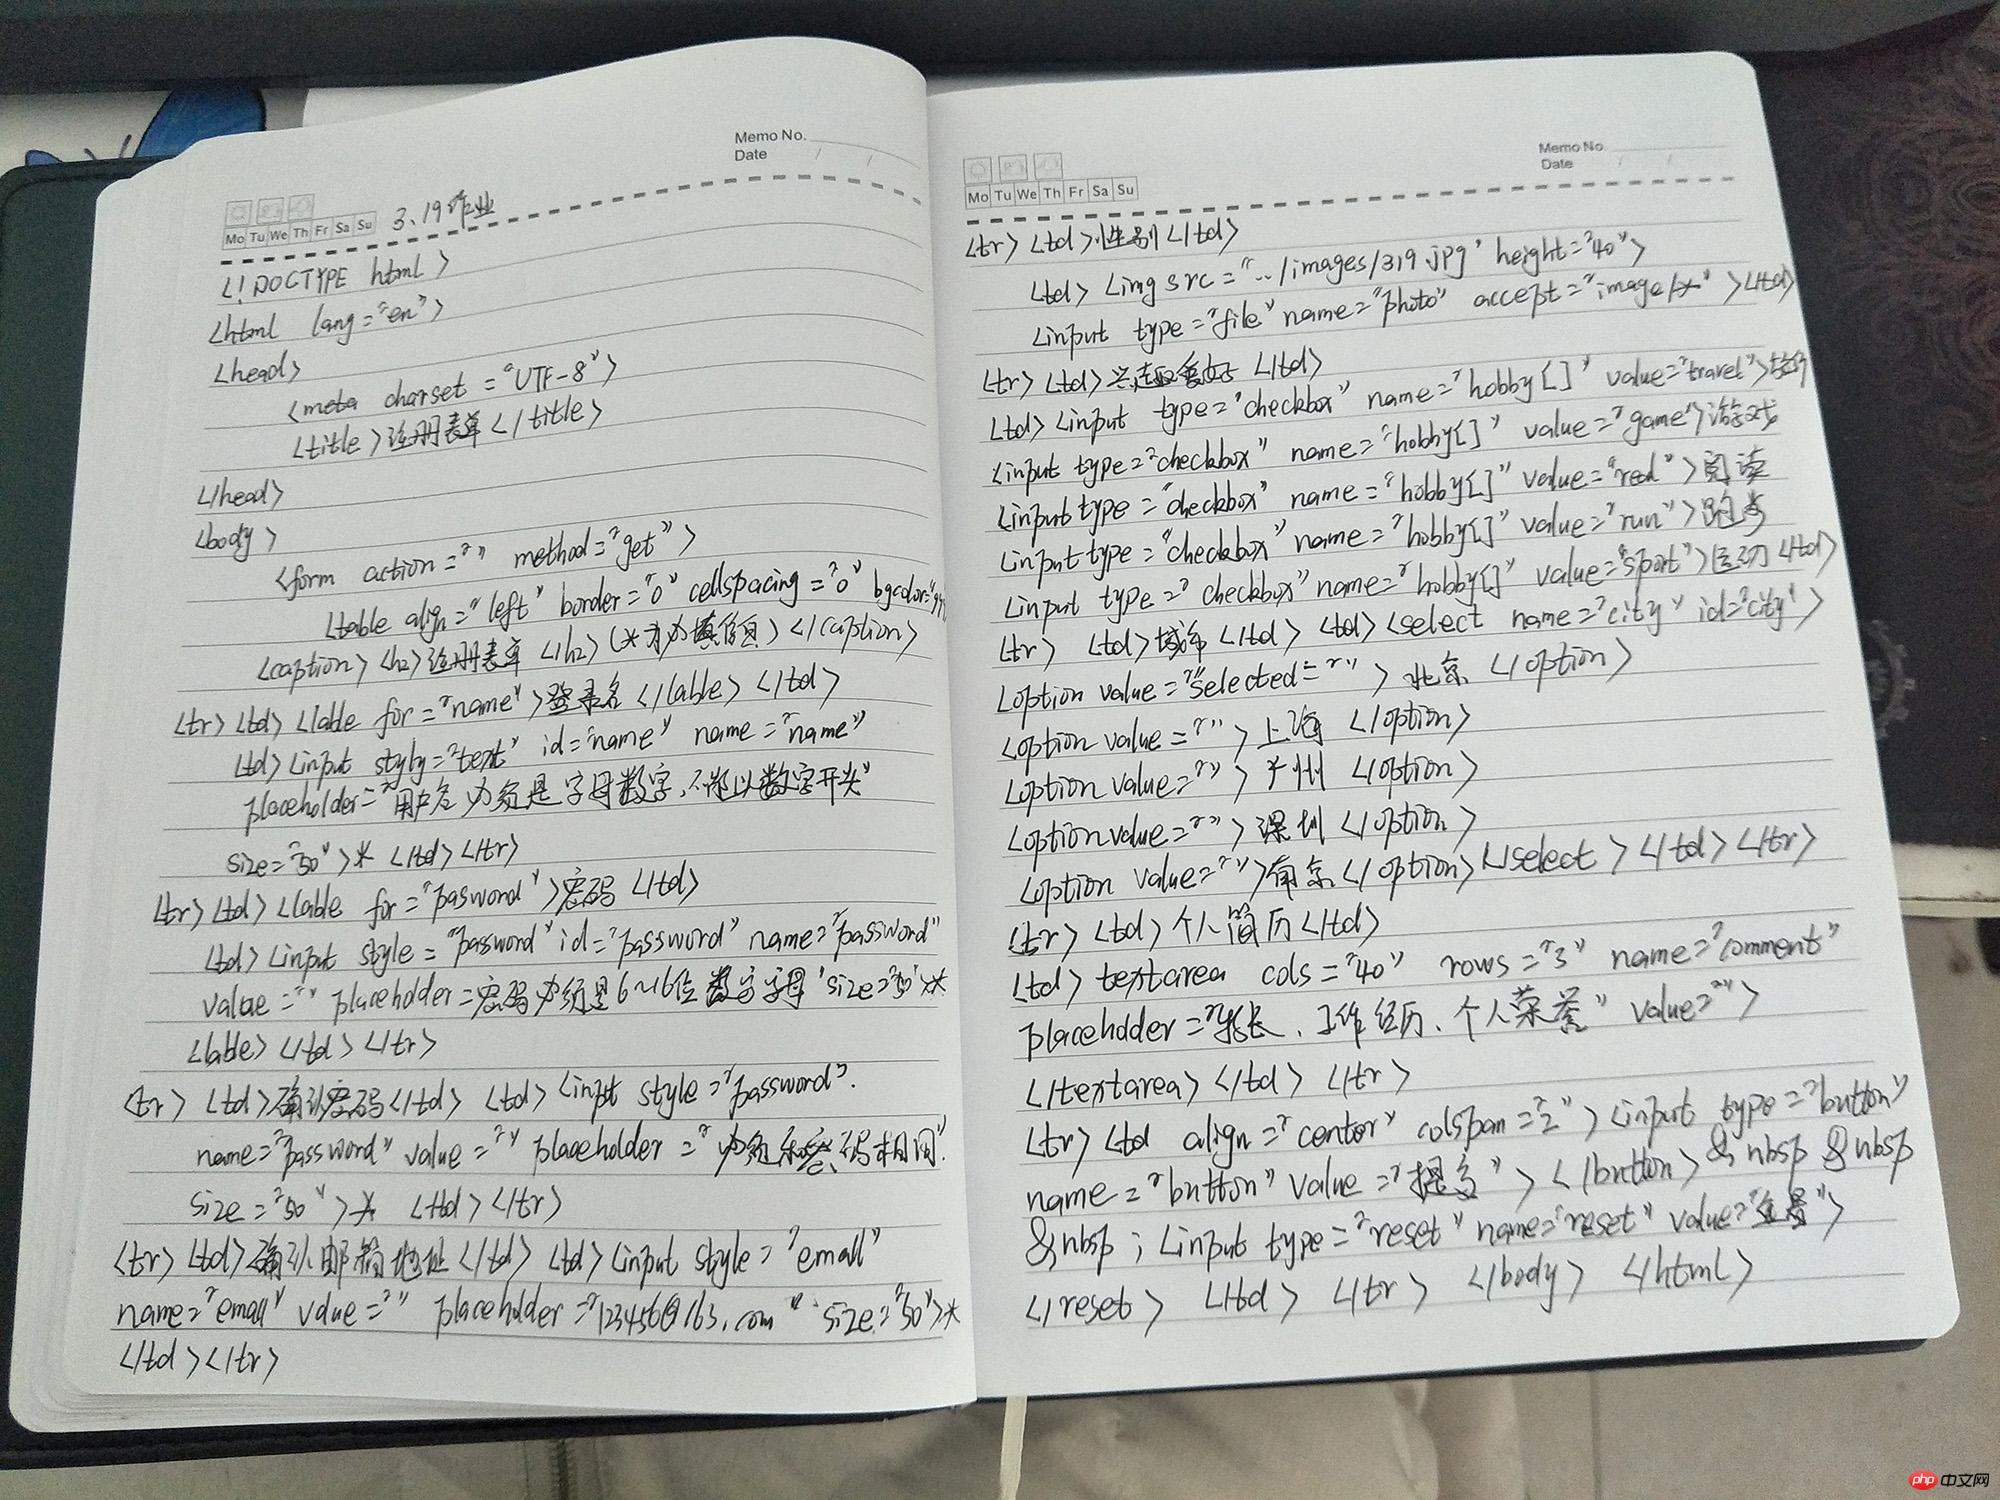 Memo No.
Date / /
Mo Tu We Th Fr Sa Su 3.19作业
<!DOCTYPE html>
<html lang="en">
<head>
<meta charset="UTF-8">
<title>注册表单</title>
</head>
<body>
<form action="" method="get">
<table align="left" border="0" cellspacing="0" bgcolor="
<caption><h2>注册表单</h2>(*为必填项目)</caption>
<tr><td><lable for="name">登录名</lable></td>
<td><input style="text" id="name" name="name"
placeholder="用户名必须是字母数字,不能以数字开头"
size="50">*</td></tr>
<tr><td><lable for="pasword">密码</td>
<td><input style="password" id="password" name="password"
value="" placeholder=密码必须是6~16位数字字母"size="50">*
<lable></td></tr>
<tr> <td>确认密码</td> <td><input style="password".
name="password" value="" placeholder="必须和密码相同"
size="50">* </td></tr>
<tr><td>确认邮箱地址</td> <td><input style="emall"
name="emall" value="" placeholder="123456@163.com" size="50">*
</td></tr>
Memo No.
Date / /
Mo Tu We Th Fr Sa Su
<tr><td>性别</td>
<td><img src="../images/319.jpg" height="40">
<input type="file" name="photo" accept="image/*"></td>
<tr><td>兴趣爱好</td>
<td><input type="checkbox" name="hobby[]" value="travel">
<input type="checkbox" name="hobby[]" value="game">游戏
<input type="checkbox" name="hobby[]" value="red">阅读
<input type="checkbox" name="hobby[]" value="run">跑步
<input type="checkbox" name="hobby[]" value="sport">运动</td>
<tr> <td>城市</td> <td><select name="city" id="city">
<option value="selected="">北京</option>
<option value="">上海</option>
<option value="">广州</option>
<option value="">深圳</option>
<option value="">南京</option></select></td></tr>
<tr><td>个人简历</td>
<td>textarea cols="40" rows="3" name="comment"
placeholder="特长、工作经历、个人荣誉" value="">
</textarea></td></tr>
<tr><td align="center" colspan="2"><input type="button"
name="button" value="提交"></button>&nbsp &nbsp
&nbsp;<input type="reset" name="reset" value="">
</reset> </td> </tr> </body> </html>
php 中文网